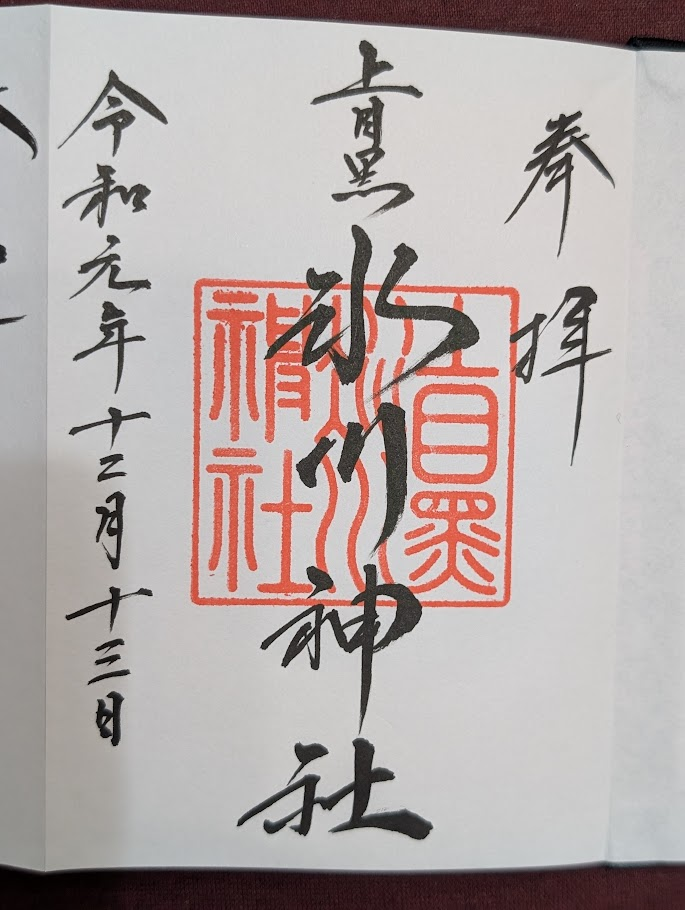 奉拝
上目黒
氷川神社
上目黒
氷川
神社
令和元年十二月十三日